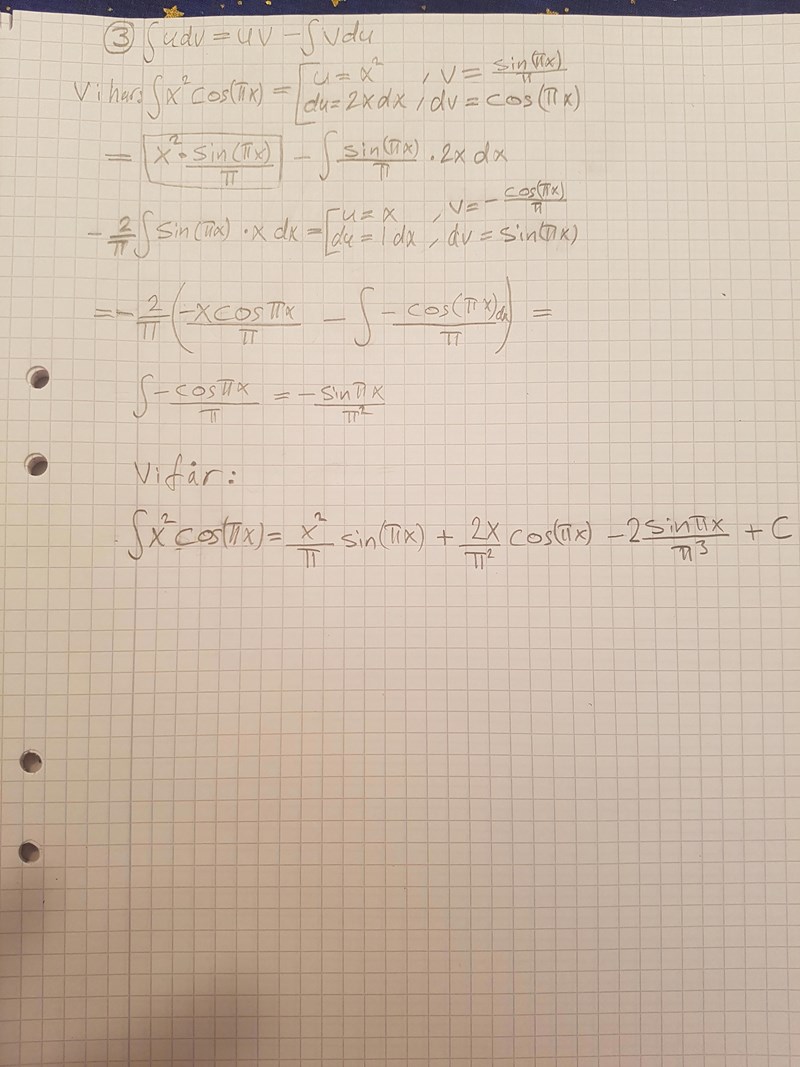 ③ ∫udv = uv − ∫vdu
Vi har: ∫x² cos(πx) = [u = x² , v = sin(πx)/π
du = 2x dx , dv = cos(πx)
= x² · sin(πx)/π − ∫ sin(πx)/π · 2x dx
− 2/π ∫ sin(πx) · x dx = [u = x , v = − cos(πx)/π
du = 1 dx , dv = sin(πx)
= − 2/π (−x cos πx/π − ∫ − cos(πx)/π dx) =
∫ − cos πx/π = − sin πx/π²
Vi får:
∫x² cos(πx) = x²/π sin(πx) + 2x/π² cos(πx) − 2 sin πx/π³ + C